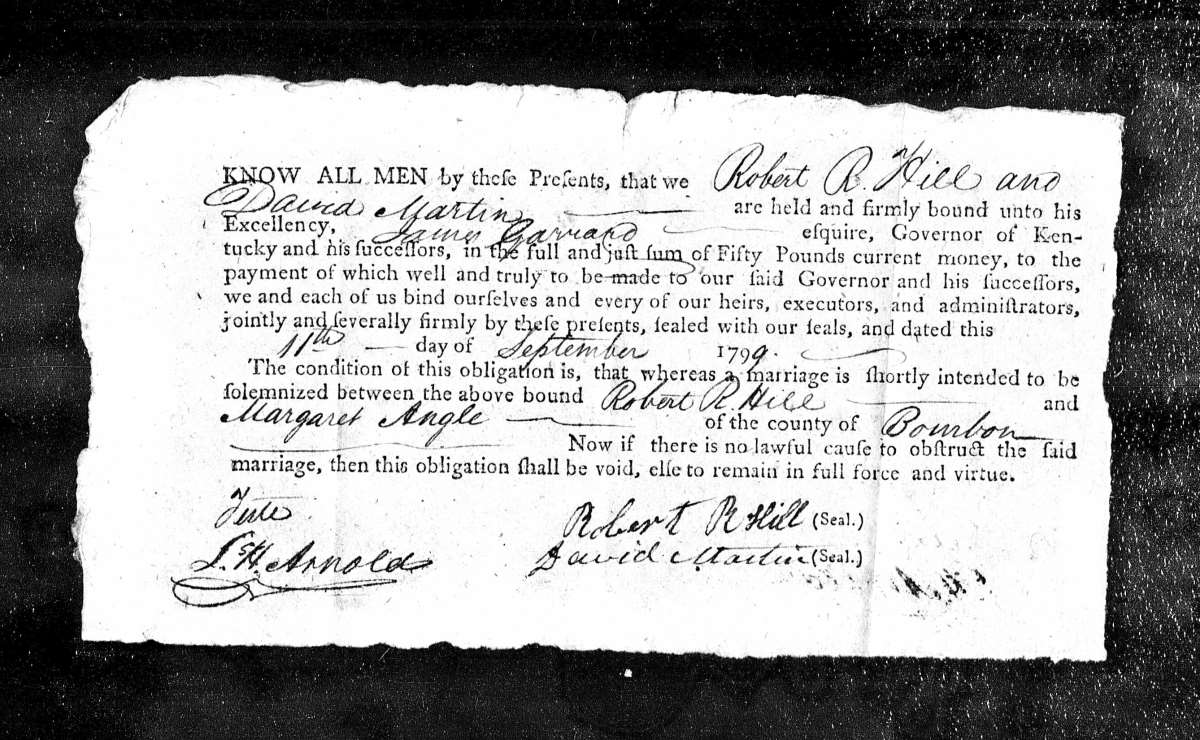 KNOW ALL MEN by theſe Preſents, that we Robert R. Hill and
David Martin are held and firmly bound unto his
Excellency, James Garrard eſquire, Governor of Ken-
tucky and his ſucceſſors, in the full and juſt ſum of Fifty Pounds current money, to the
payment of which well and truly to be made to our ſaid Governor and his ſucceſſors,
we and each of us bind ourſelves and every of our heirs, executors, and adminiſtrators,
jointly and ſeverally firmly by theſe preſents, ſealed with our ſeals, and dated this
11th day of September 1799.
The condition of this obligation is, that whereas a marriage is ſhortly intended to be
ſolemnized between the above bound Robert R Hill and
Margaret Angle of the county of Bourbon
Now if there is no lawful cauſe to obſtruct the ſaid
marriage, then this obligation ſhall be void, elſe to remain in full force and virtue.
Robert R Hill (Seal.)
H. Arnold David Martin (Seal.)